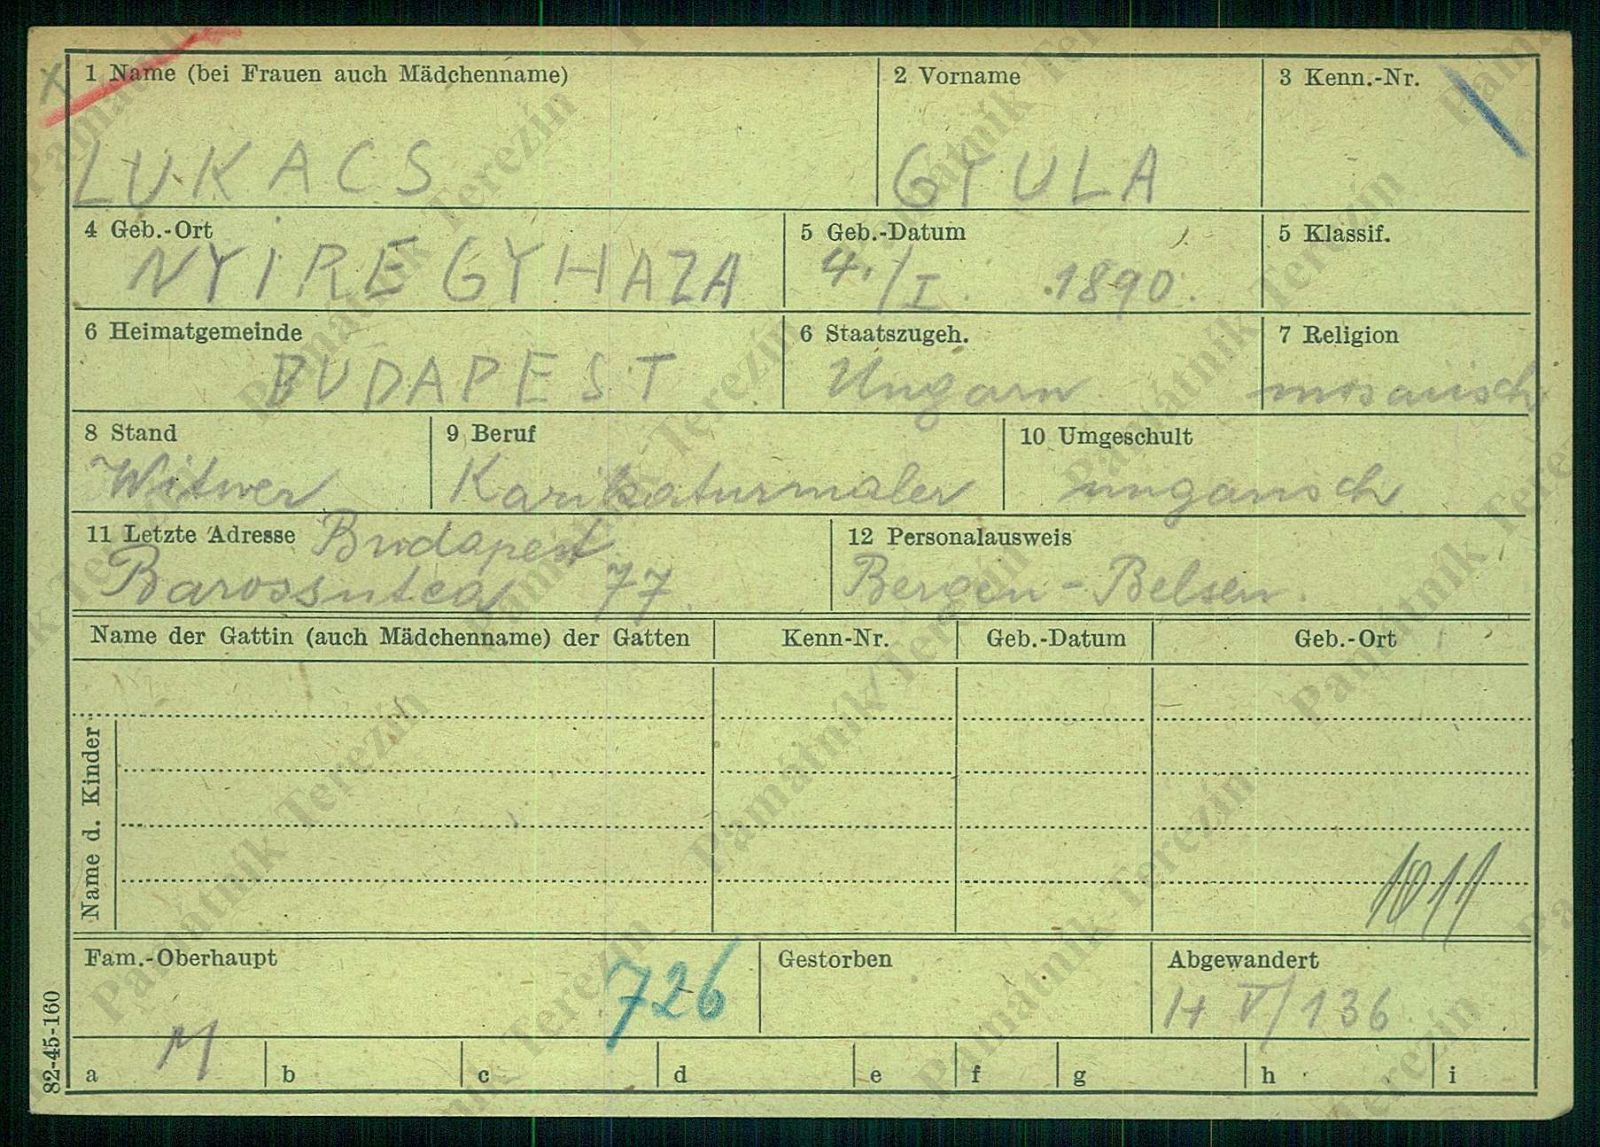 1 Name (bei Frauen auch Mädchenname)
LUKACS
2 Vorname
GYULA
3 Kenn.-Nr.
4 Geb.-Ort
NYIREGYHAZA
5 Geb.-Datum
4./I. 1890.
5 Klassif.
6 Heimatgemeinde
BUDAPEST
6 Staatszugeh.
Ungarn
7 Religion
mosaisch
8 Stand
Witwer
9 Beruf
Karikaturmaler
10 Umgeschult
ungarisch
11 Letzte Adresse Budapest
Barossutca 77.
12 Personalausweis
Bergen-Belsen.
Name der Gattin (auch Mädchenname) der Gatten
Kenn-Nr.
Geb.-Datum
Geb.-Ort
Name d. Kinder
1011
Fam.-Oberhaupt
726
Gestorben
Abgewandert
H V/136
M
a b c d e f g h i
82-45-160
Památník Terezín